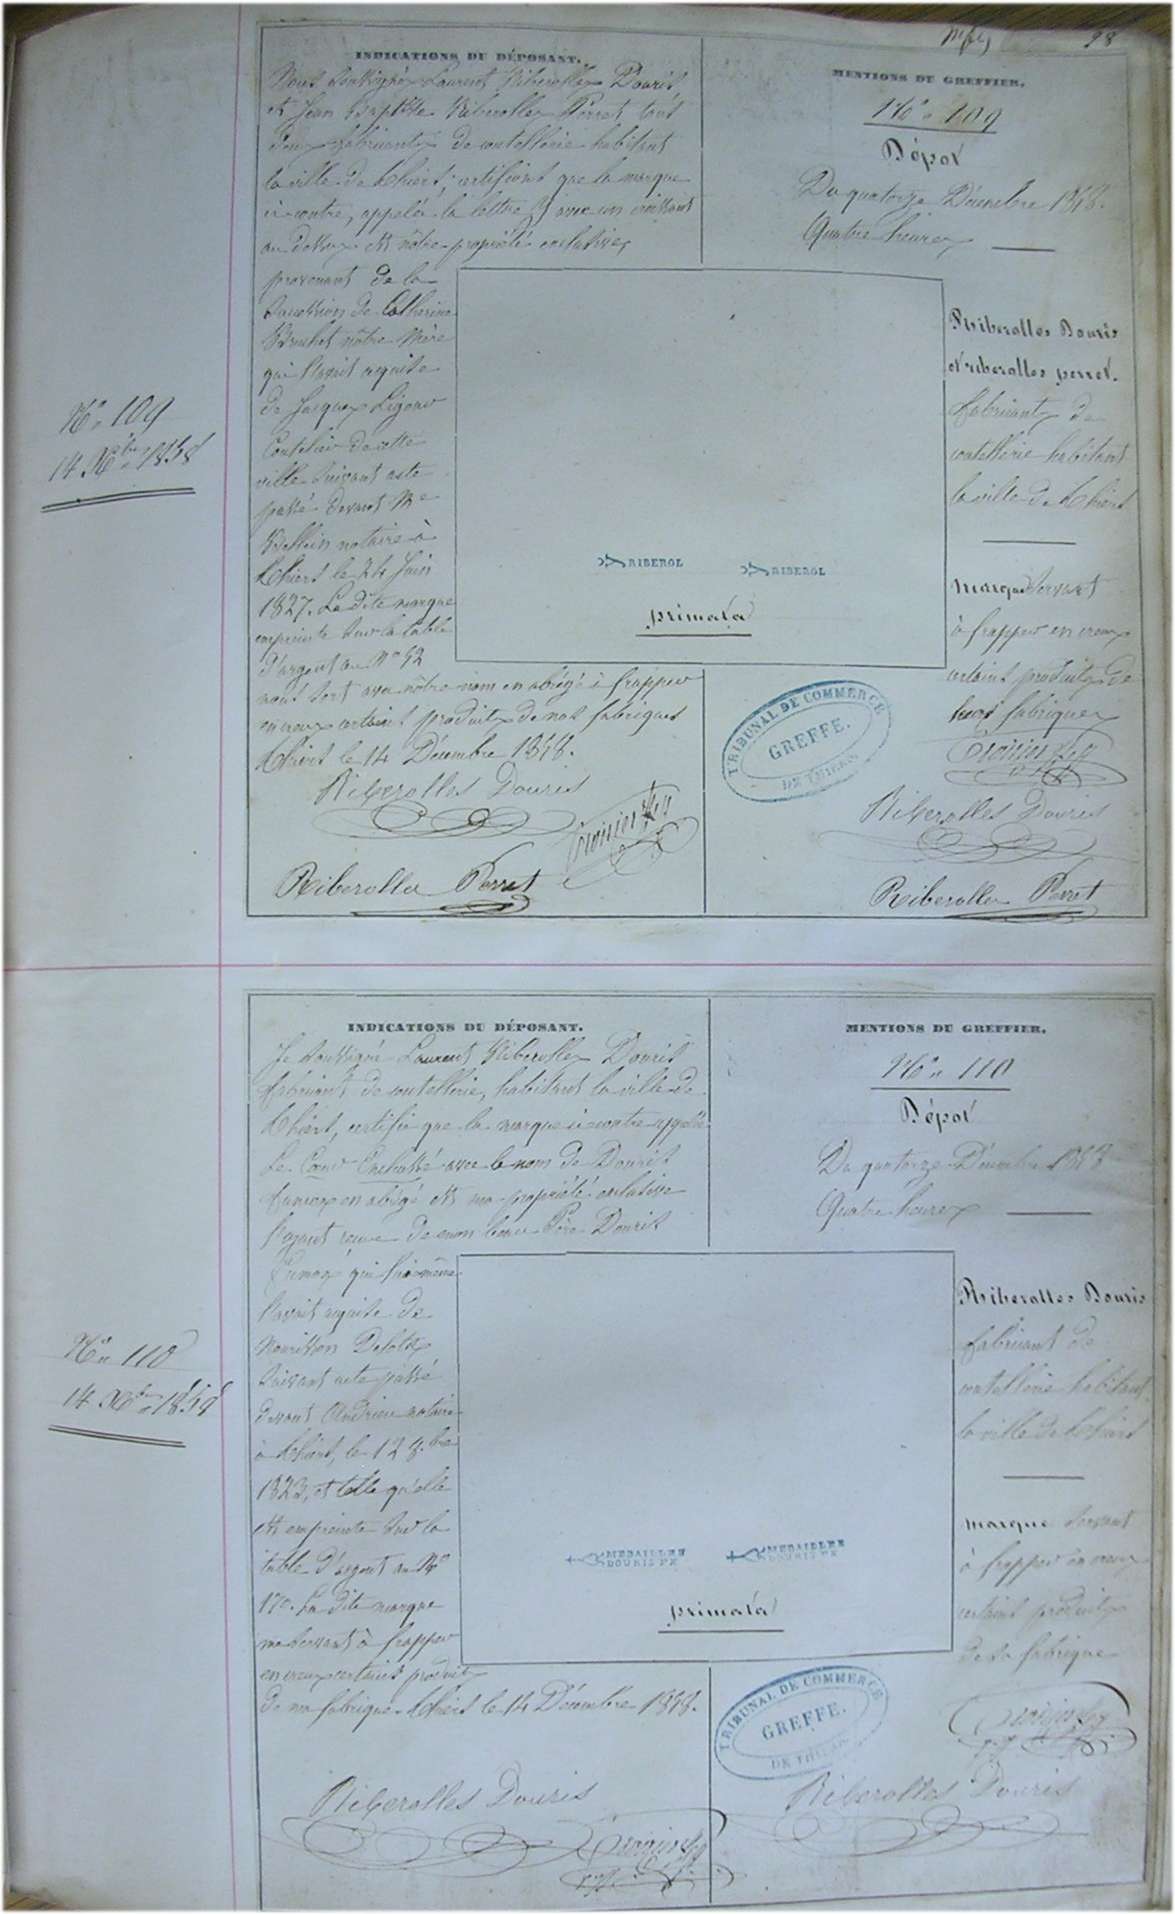 98
INDICATIONS DU DÉPOSANT.
Nous soussignés Laurent Riberolles Douris,
et Jean Baptiste Riberolles Perret tout
deux fabricants de coutellerie habitant
la ville de Thiers, certifions que la marque
ci contre, appelée la lettre Y avec un croissant
au dessus est nôtre propriété exclusive,
provenant de la
succession de Catherine
Bruchet nôtre Mère
qui l'avait acquise
de Jacques Ligour
Coutelier de cette
ville suivant acte
passé devant Me
notaire à
Thiers le 24 Juin
1827. La dite marque
empreinte sur la table
d'argent au No 52
nous sert avec nôtre nom en abrégé à frapper
en creux certains produits de nos fabriques
Thiers le 14 Décembre 1858.
Riberolles Douris
Riberolles Perret
MENTIONS DU GREFFIER.
No 109
Dépot
Du quatorze Décembre 1858.
Quatre heures
Riberolles Douris
et riberolles perret.
fabricants de
coutellerie habitant
la ville de Thiers
marque servant
à frapper en creux
certains produits de
leurs fabriques
Riberolles Douris
Riberolles Perret
RIBEROL
RIBEROL
primata
TRIBUNAL DE COMMERCE
GREFFE.
DE THIERS
No 109
14 Xbre 1858
INDICATIONS DU DÉPOSANT.
Je soussigné Laurent Riberolles Douris
fabricant de coutellerie, habitant la ville de
Thiers, certifie que la marque ci contre appelée
Le Cœur Enchassé avec le nom de Douris
fumoux en abrégé est ma propriété exclusive
l'ayant reçue de mon beau Père Douris
fumoux qui lui même
l'avait acquise de
Nourisson Delots
suivant acte passé
devant Andrieu notaire
à Thiers, le 12 8.bre
1823, et telle qu'elle
est empreinte sur la
table d'argent au No
170. La dite marque
me servant à frapper
en creux certains produits
de ma fabrique. Thiers le 14 Décembre 1858.
Riberolles Douris
MENTIONS DU GREFFIER.
No 110
Dépot
Du quatorze Décembre 1858
Quatre heures
Riberolles Douris
fabricant de
coutellerie habitant
la ville de Thiers
marque servant
à frapper en creux
certains produits
de sa fabrique
Riberolles Douris
MEDAILLES
DOURIS FX
MEDAILLES
DOURIS FX
primata
TRIBUNAL DE COMMERCE
GREFFE.
DE THIERS
No 110
14 Xbre 1858